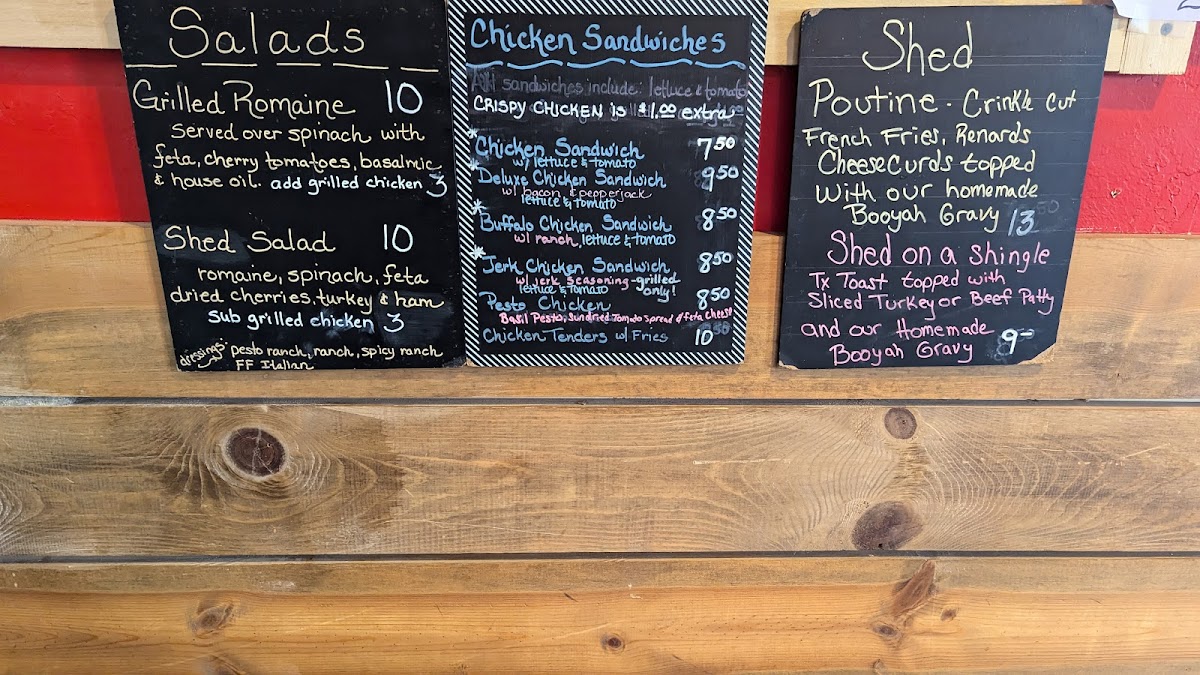 Salads
Grilled Romaine 10
Served over spinach with
feta, cherry tomatoes, basalmic
& house oil. add grilled chicken 3
Shed Salad 10
romaine, spinach, feta
dried cherries, turkey & ham
Sub grilled chicken 3
dressings: pesto ranch, ranch, spicy ranch
FF Italian
Chicken Sandwiches
All sandwiches include: lettuce & tomato
CRISPY CHICKEN is $1.00 extra
*Chicken Sandwich 7.50
w/ lettuce & tomato
*Deluxe Chicken Sandwich 9.50
w/ bacon & pepperjack
lettuce & tomato
*Buffalo Chicken Sandwich 8.50
w/ ranch lettuce & tomato
*Jerk Chicken Sandwich 8.50
w/ jerk seasoning - grilled
lettuce & tomato only!
Pesto Chicken 8.50
Basil Pesto, Sundried Tomato spread & feta cheese
Chicken Tenders w/ Fries 10
Shed
Poutine - Crinkle cut
French Fries, Renards
Cheese Curds topped
with our homemade
Booyah Gravy 13
Shed on a Shingle
Tx Toast topped with
Sliced Turkey or Beef Patty
and our Homemade
Booyah Gravy 9